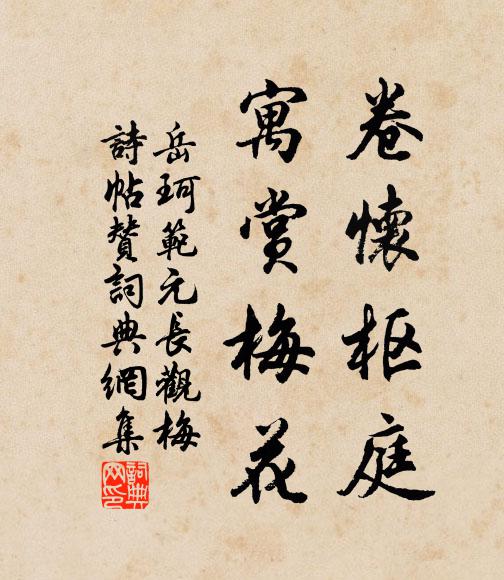 卷懷枢庭
寓賞梅花
岳珂範元長觀梅
詩帖贊詞典網集